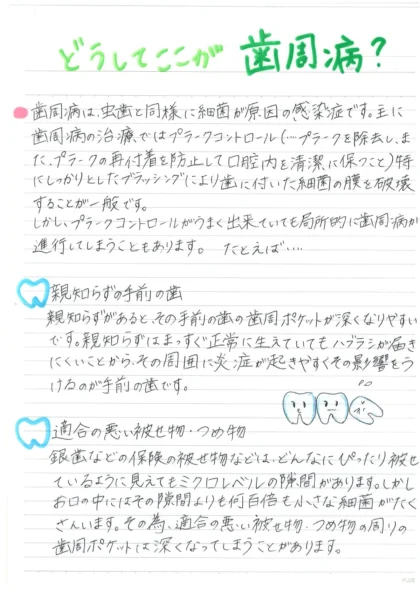 どうしてここが 歯周病?
歯周病は、虫歯と同様に細菌が原因の感染症です。主に
歯周病の治療ではプラークコントロール(…プラークを除去し、ま
た、プラークの再付着を防止して口腔内を清潔に保つこと)特
にしっかりとしたブラッシングにより歯に付いた細菌の膜を破壊
することが一般です。
しかし、プラークコントロールがうまく出来ていても局所的に歯周病が
進行してしまうこともあります。 たとえば‥‥
親知らずの手前の歯
親知らずがあると、その手前の歯の歯周ポケットが深くなりやすい
です。親知らずはまっすぐ正常に生えていてもハブラシが届き
にくいことから、その周囲に炎症が起きやすくその影響をう
けるのが手前の歯です。
適合の悪い被せ物・つめ物
銀歯などの保険の被せ物などは、どんなにぴったり被せ
ているように見えてもミクロレベルの隙間があります。しかし
お口の中にはその隙間よりも何百倍も小さな細菌がたく
さんいます。その為、適合の悪い被せ物・つめ物の周りの
歯周ポケットは深くなってしまうことがあります。